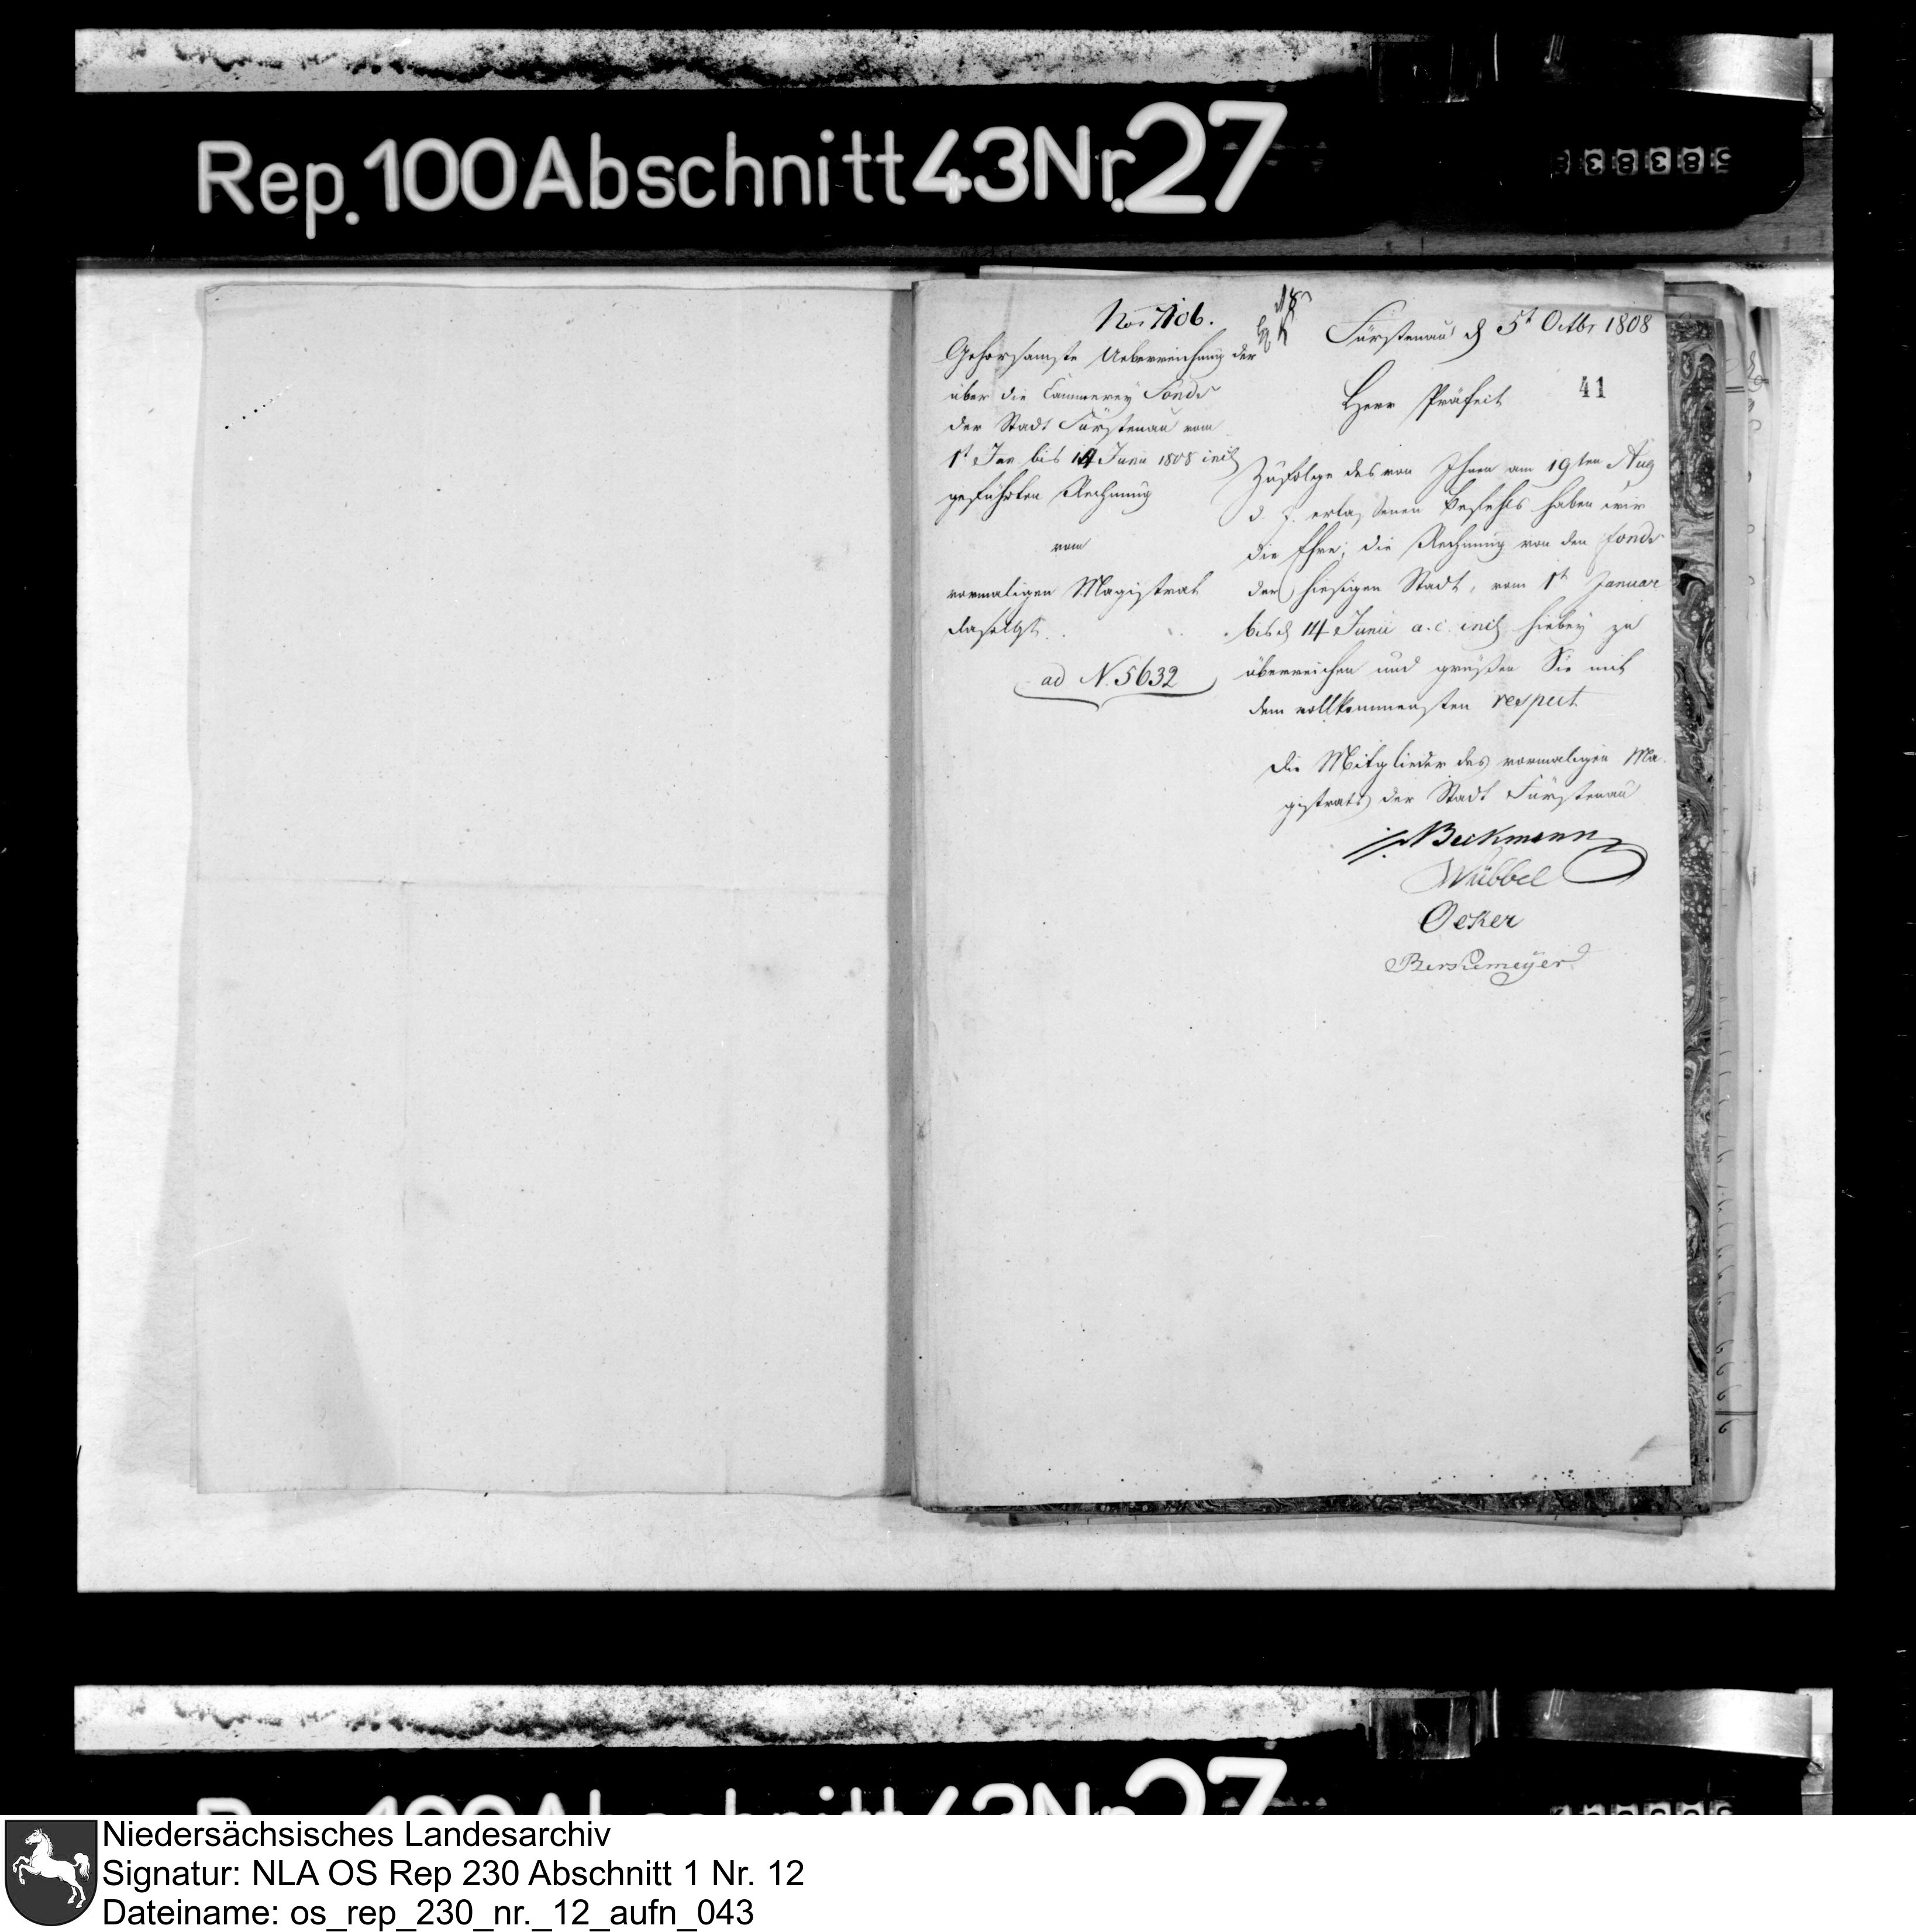 Rep. 100 Abschnitt 43 Nr. 27
No. 7106.
Gehorsamste Ueberreichung der
über die Cämmerey Fonds
der Stadt Fürstenau vom
1t Jan bis 14 Junii 1808 incl
geführten Rechnung
vom
vormaligen Magistrat
daselbst.
ad N. 5632
Fürstenau d 5t Octbr 1808
41
Herr Präfect
Zufolge des von Ihnen am 19ten Aug
d. J. erlaßenen Befehls haben wir
die Ehre, die Rechnung von den fonds
der hiesigen Stadt, vom 1t Januar
bis d 14 Junii a. c. incl hiebey zu
überreichen und grüßen Sie mit
dem vollkommensten respect
Die Mitglieder des vormaligen Ma-
gistrats der Stadt Fürstenau
Beckmann
Wübbel
Oeker
Niedersächsisches Landesarchiv
Signatur: NLA OS Rep 230 Abschnitt 1 Nr. 12
Dateiname: os_rep_230_nr._12_aufn_043